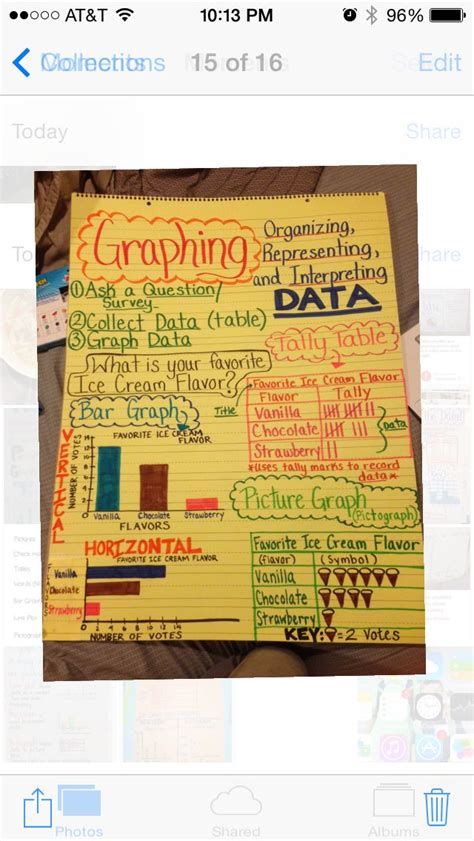 AT&T 10:13 PM 96%
15 of 16
Edit
Today
Share
Graphing
Organizing,
Representing,
and Interpreting
DATA
① Ask a Question/
Survey
② Collect Data (table)
③ Graph Data
What is your favorite
Ice Cream Flavor?
Tally Table
Title
Favorite Ice Cream Flavor
Flavor Tally
Vanilla
Chocolate
Strawberry
Data
*Uses tally marks to record
data*
Bar Graph
VERTICAL
FAVORITE ICE CREAM
FLAVOR
NUMBER OF VOTES
Vanilla Chocolate Strawberry
FLAVORS
Picture Graph
(Pictograph)
HORIZONTAL
FAVORITE ICE CREAM FLAVOR
FLAVORS
Vanilla
Chocolate
Strawberry
0 2 4 6 8 10 12 14
NUMBER OF VOTES
Favorite Ice Cream Flavor
(flavor) (symbol)
Vanilla
Chocolate
Strawberry
KEY: = 2 votes
Photos Shared Albums